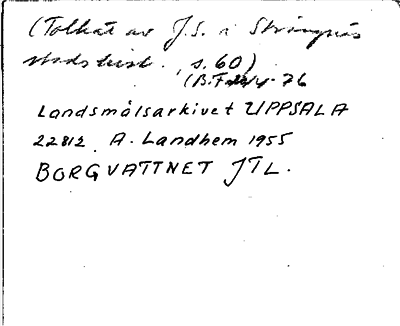 (Tolkat av J.S. i Strängnäs
stads hist., s. 60)
(B.F. 4-76
Landsmålsarkivet UPPSALA
22812. A. Landhem 1955
BORGVATTNET JTL.